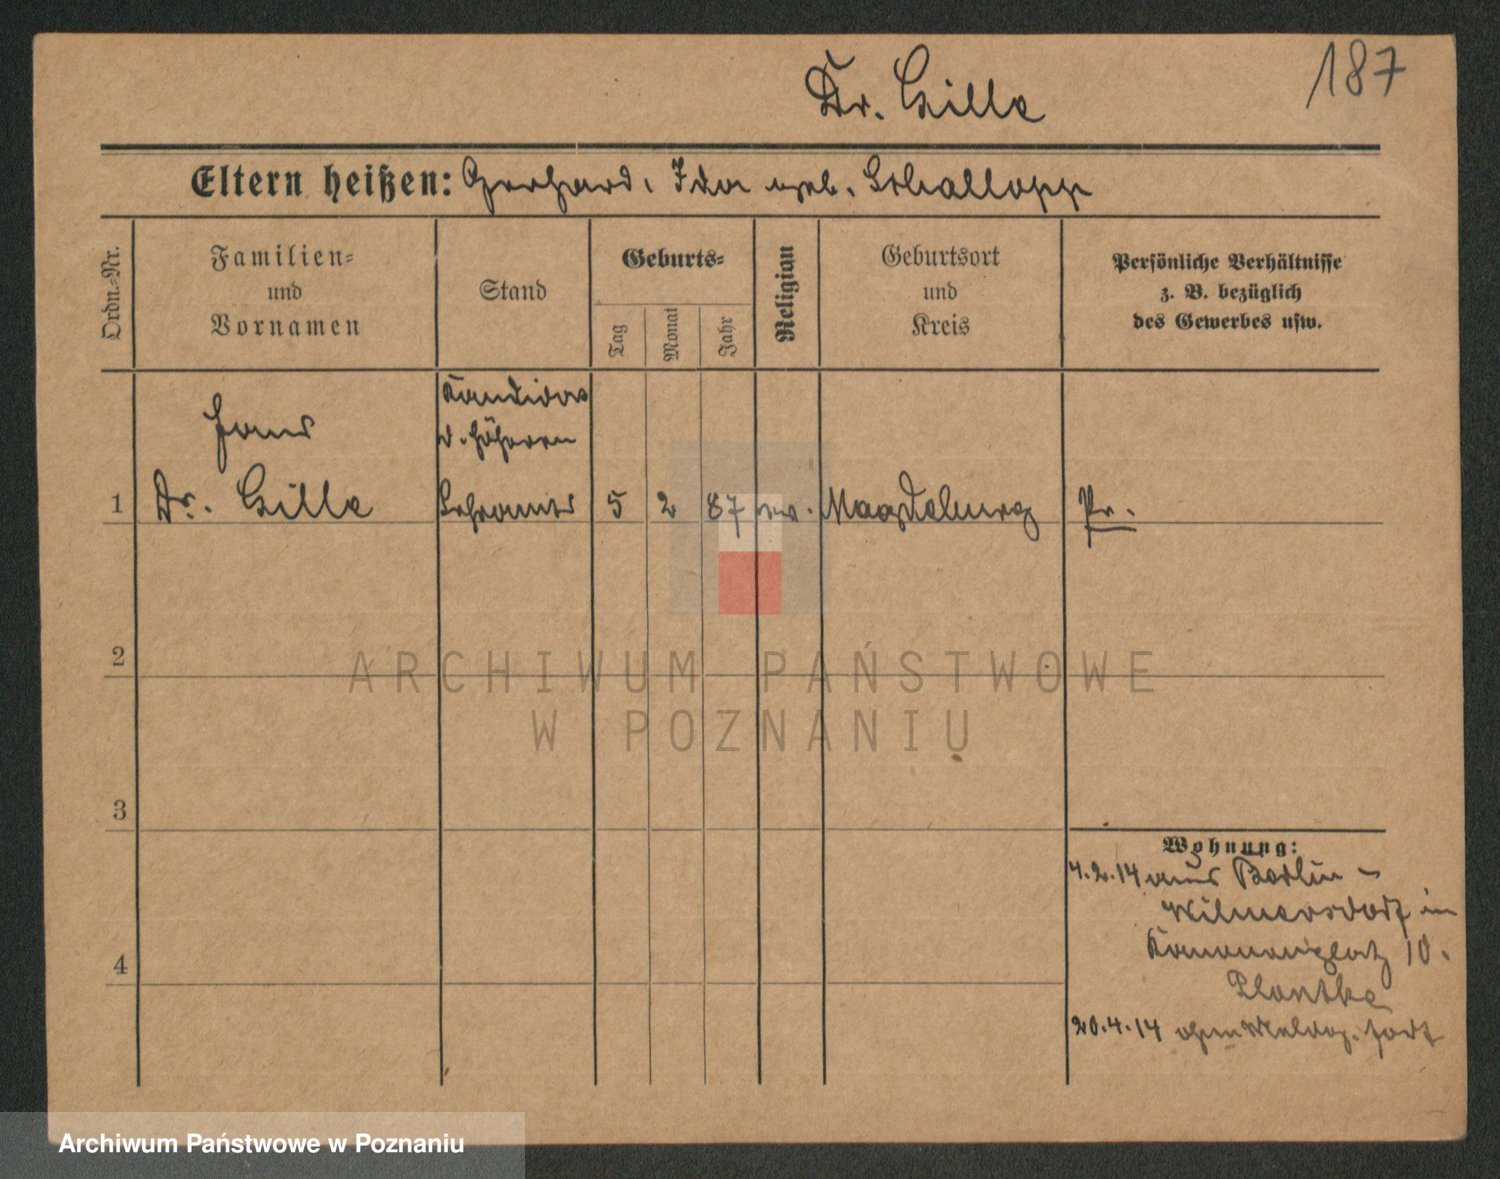 187
Dr. Gille
Eltern heißen: Gerhard. Ida geb. Schallopp
Ordn.-Nr.
Familien- und Vornamen
Stand
Geburts-
Tag
Monat
Jahr
Religion
Geburtsort und Kreis
Persönliche Verhältnisse z. B. bezüglich des Gewerbes usw.
Kandidat
Hans
d. höheren
1 Dr. Gille Lehramts 5 2 87 ev. Magdeburg Pr.
2
3
Wohnung:
4.2.14 aus Berlin-
Wilmersdorf in
10.
4
20.4.14 ohne Meldg. fort
ARCHIWUM PAŃSTWOWE
W POZNANIU
Archiwum Państwowe w Poznaniu